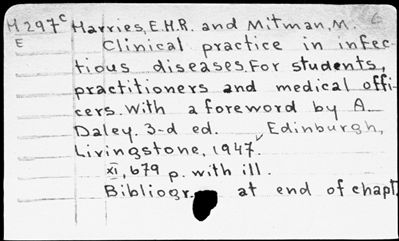 H297c Harries, E.H.R. and Mitman, M. 6
E Clinical practice in infec-
tious diseases. For students,
practitioners and medical offi-
cers. With a foreword by A.
Daley. 3-d ed. Edinburgh,
Livingstone, 1947.
XI, 679 p. with ill.
Bibliogr. at end of chapt.